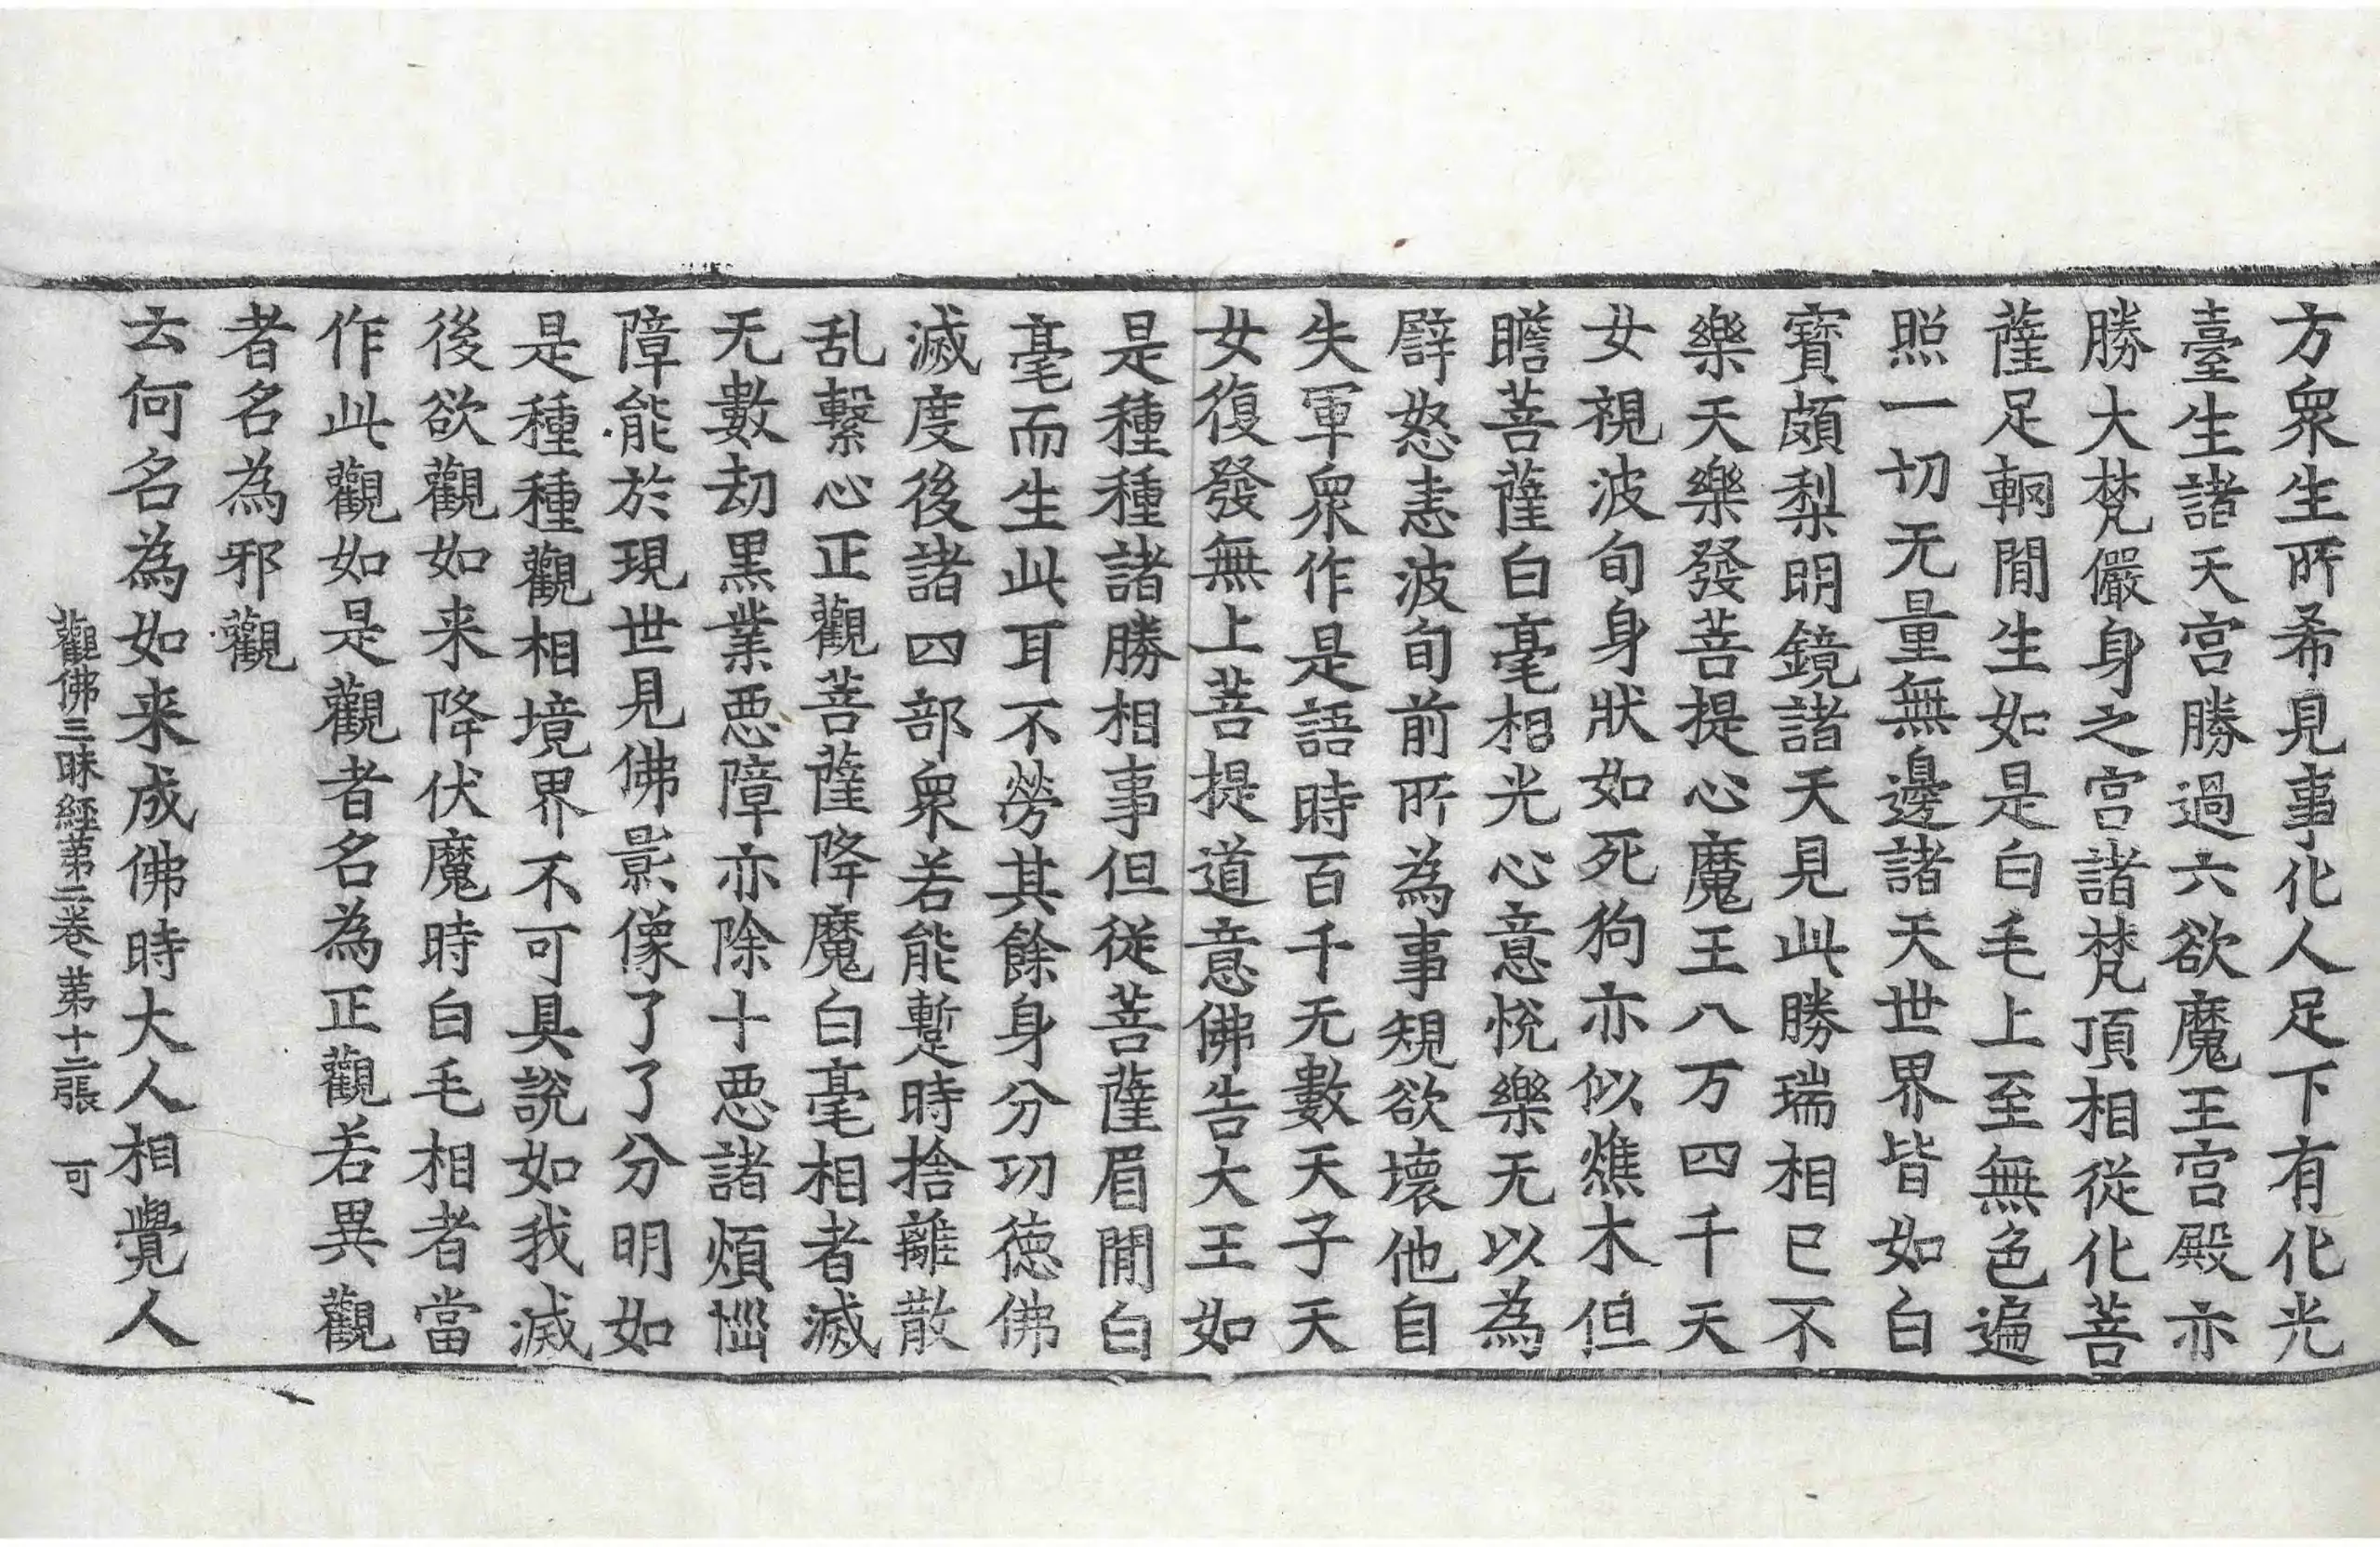 方衆生所希見事化人足下有化光
臺生諸天宫勝過六欲魔王宫殿亦
勝大梵儼身之宫諸梵頂相從化菩
薩足輞間生如是白毛上至無色遍
照一切无量無邊諸天世界皆如白
寶頗梨明鏡諸天見此勝瑞相已不
樂天樂發菩提心魔王八万四千天
女視波旬身狀如死狗亦似燋木但
瞻菩薩白毫相光心意悅樂无以為
譬怒恚波旬前所為事規欲壞他自
失軍衆作是語時百千无數天子天
女復發無上菩提道意佛告大王如
是種種諸勝相事但從菩薩眉間白
毫而生此耳不勞其餘身分功德佛
滅度後諸四部衆若能暫時捨離散
乱繫心正觀菩薩降魔白毫相者滅
无數劫黒業惡障亦除十惡諸煩惱
障能於現世見佛影像了了分明如
是種種觀相境界不可具說如我滅
後欲觀如来降伏魔時白毛相者當
作此觀如是觀者名為正觀若異觀
者名為邪觀
云何名為如来成佛時大人相覺人
觀佛三昧經苐二卷 苐十二張 可